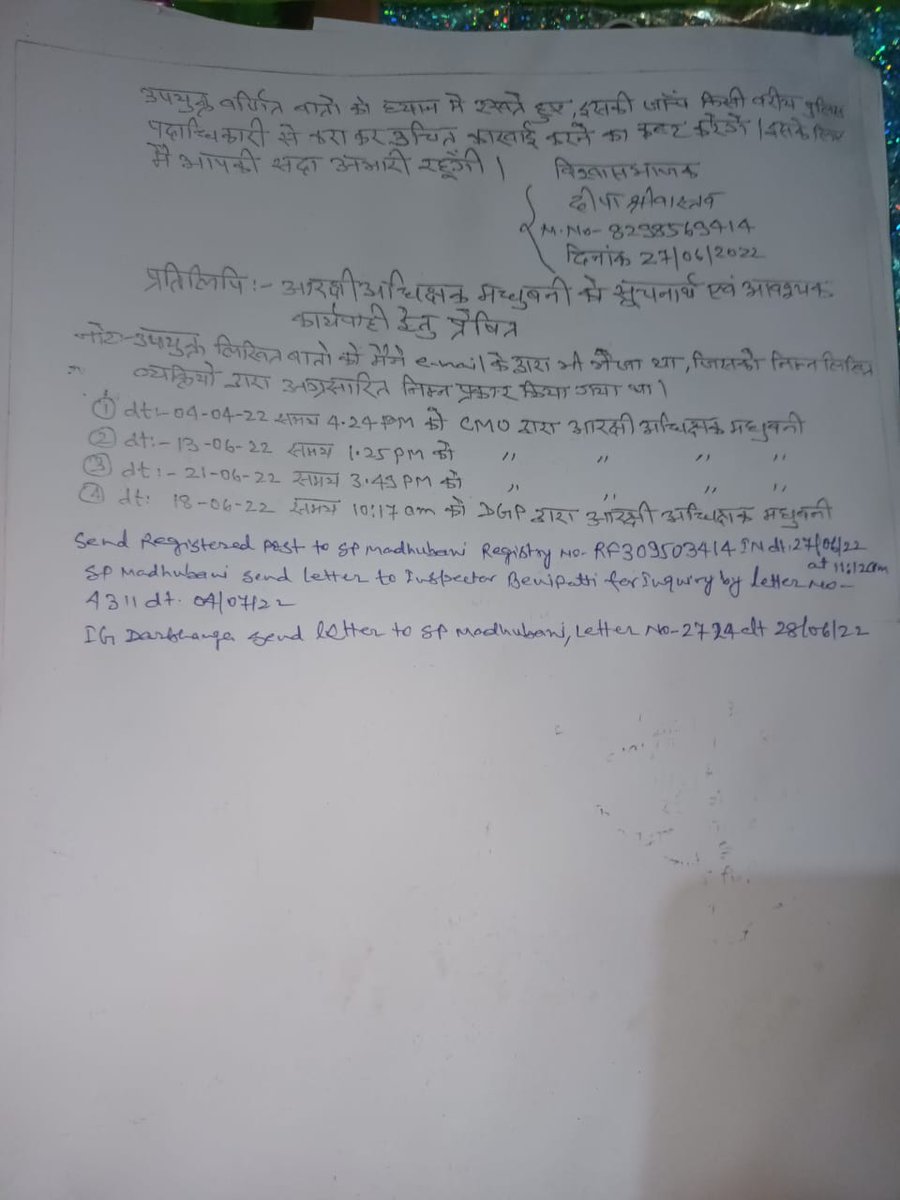 उपयुक्त वर्णित बातो को ध्यान मे रखते हुए, इसकी जाँच किसी वरीय पुलिस
पदाधिकारी से करा कर उचित कारवाई करने का कष्ट करेंगे। इसके लिए
मै आपकी सदा अभारी रहूँगी।
विश्वासभाजक
दीपा श्रीवास्तव
M.No- 8298569414
दिनांक 27/06/2022
प्रतिलिपि:- आरक्षी अधिक्षक मधुबनी को सूचनार्थ एवं आवश्यक
कार्यवाही हेतु प्रेषित
नोट:- उपयुक्त लिखित बातो को मैने e-mail के द्वारा भी भेजा था, जिसको निम्न लिखित
व्यक्तियो द्वारा अग्रसारित निम्न प्रकार किया गया था।
① dt:-04-04-22 समय 4.24 pm को CMO द्वारा आरक्षी अधिक्षक मधुबनी
② dt:- 13-06-22 समय 1.25 PM को " " " "
③ dt:- 21-06-22 समय 3.49 PM को " " " "
④ dt: 18-06-22 समय 10:17 am को DGP द्वारा आरक्षी अधिक्षक मधुबनी
Send Registered Post to SP Madhubani Registry No- RF309503414IN dt. 27/06/22
at 11:12am
SP Madhubani send letter to Inspector Benipatti for Inquiry by letter No-
4311 dt. 04/07/22
IG Darbhanga send letter to SP Madhubani, Letter No-2724 dt 28/06/22